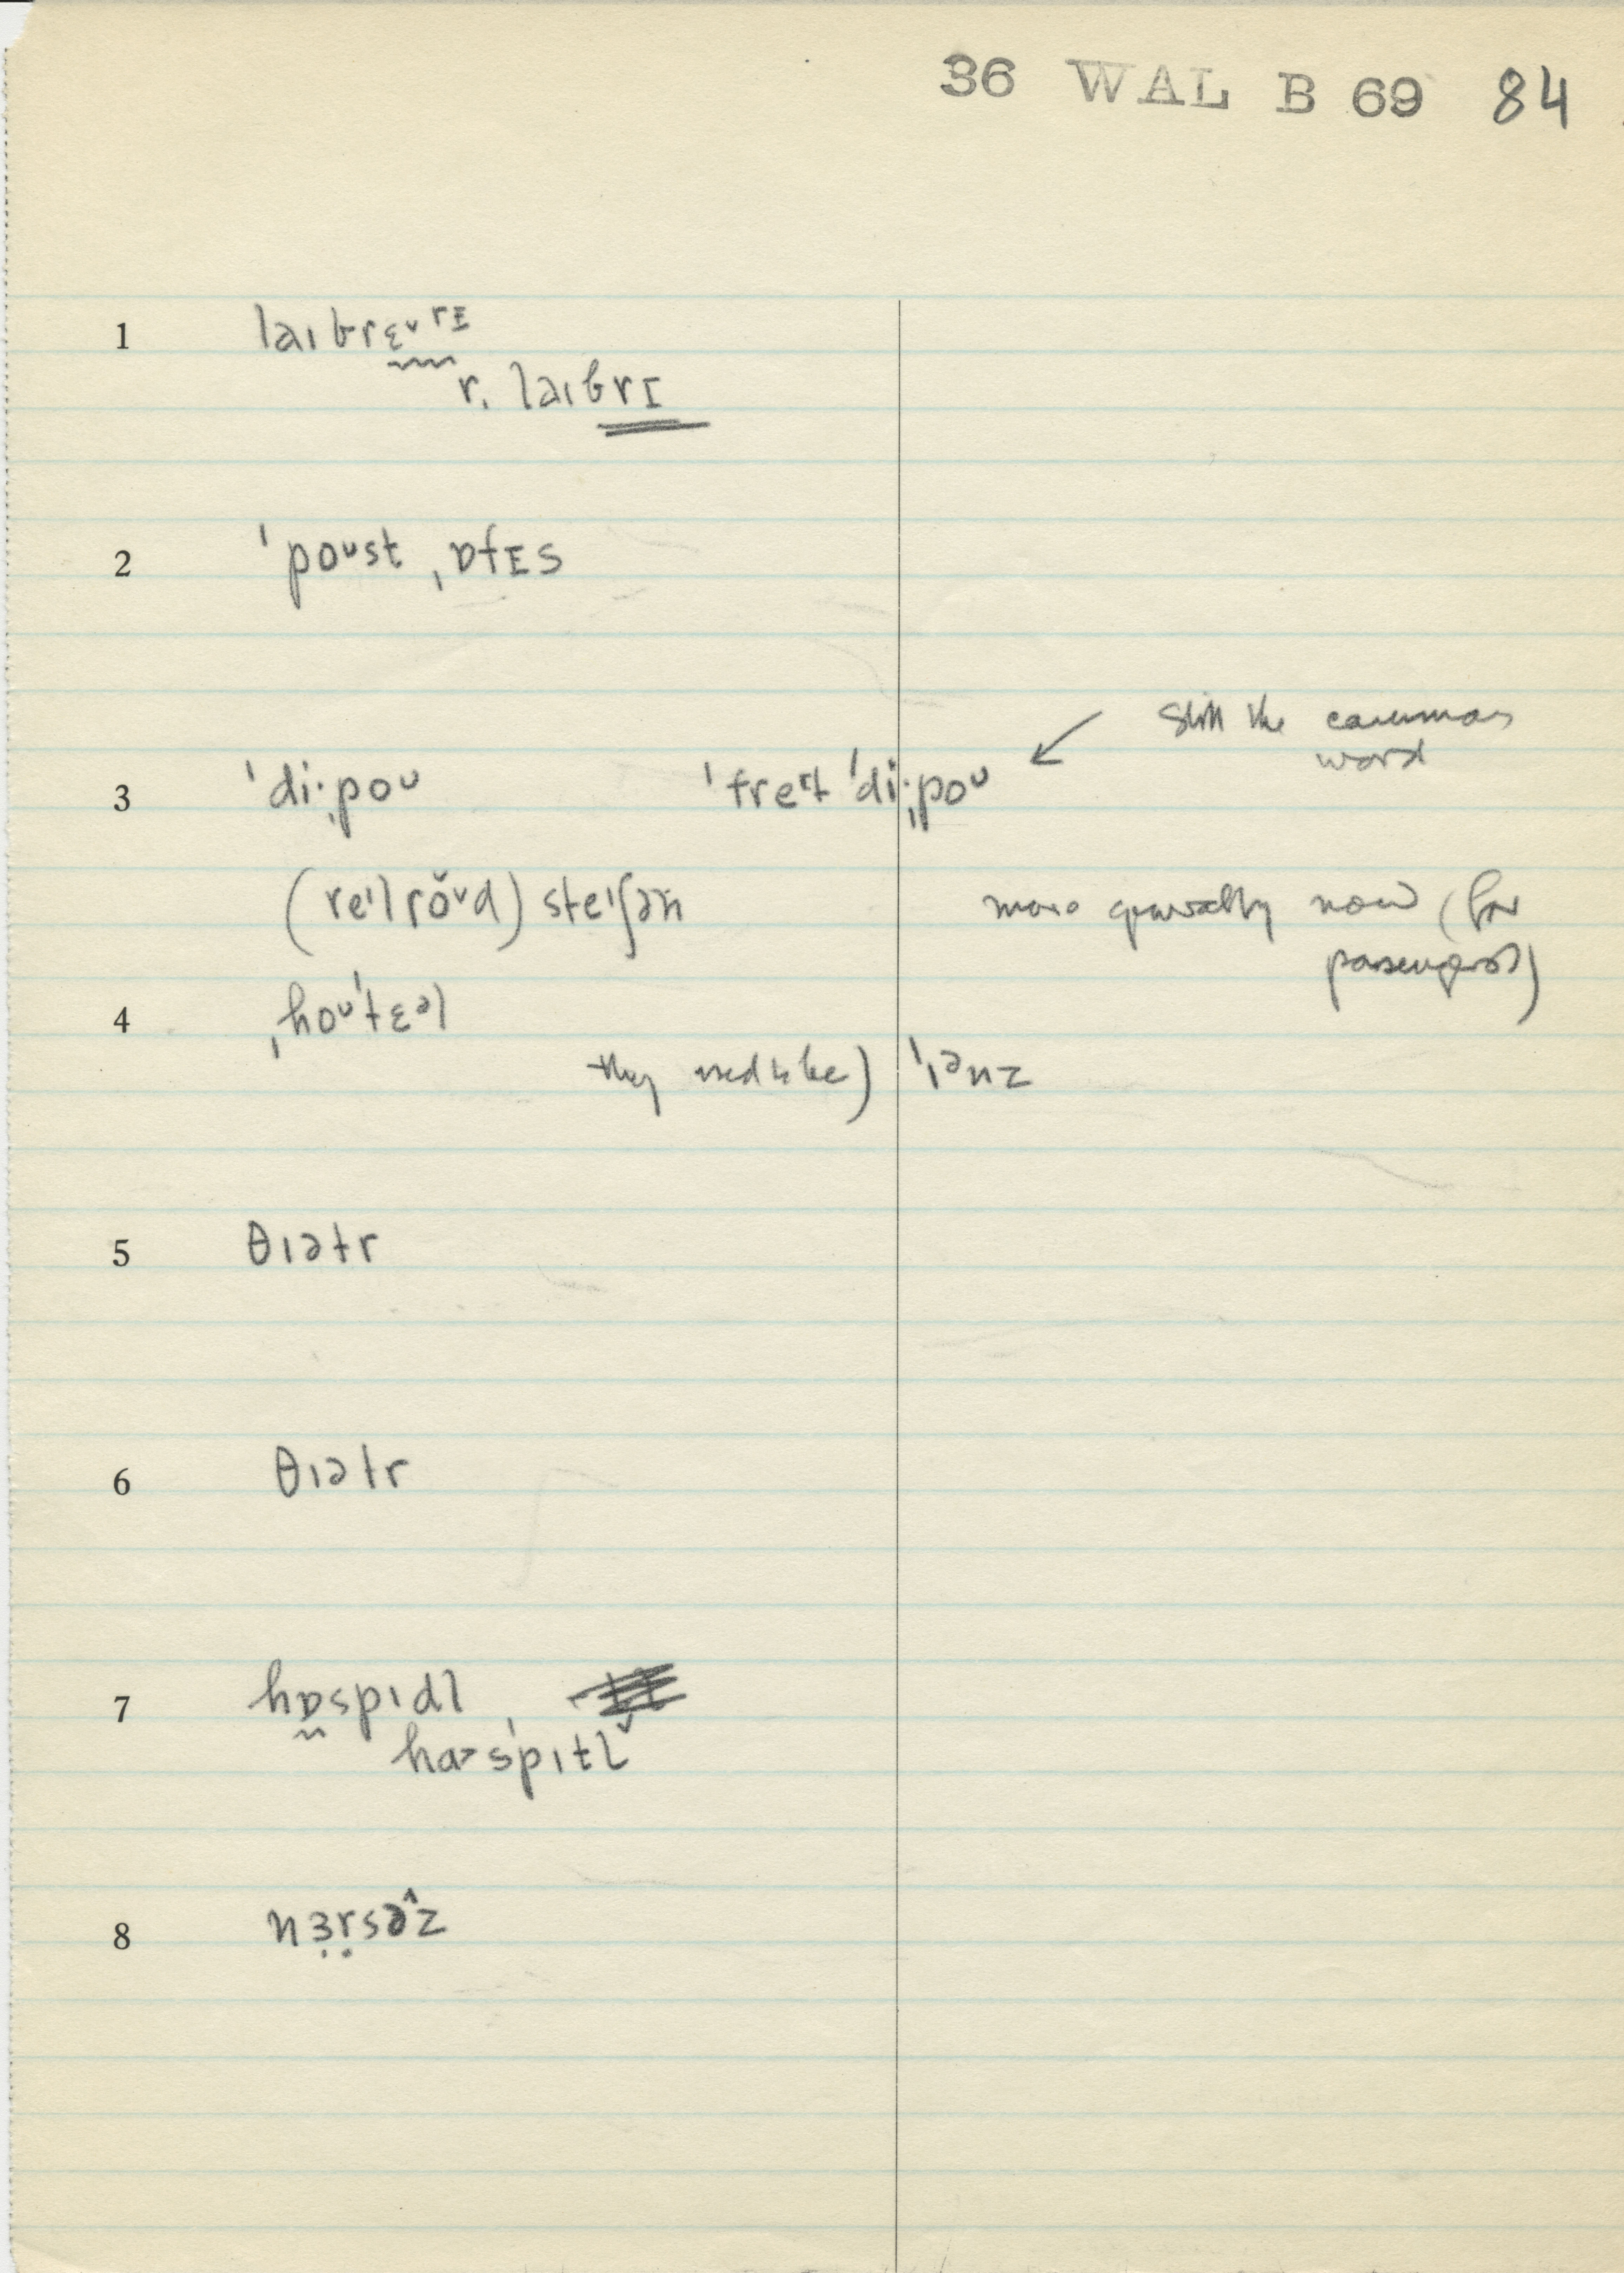 36 WAL B 69 84
1 laɪbrɛᵛrɪ
r. laɪbrɪ
2 ˈpoᵘst ˌɒfɪs
still the common
word
3 ˈdi·ˌpoᵘ ˈfreᶦt ˈdi·ˌpoᵘ
(reᶦlrŏᵘd) steᶦʃən
more generally now (for
passengers)
4 ˌhoᵘˈtɛᵊl
they used to be) ˈɪᵊnz
5 θɪətr
6 θɪətr
7 hɒspɪdl
haˈspɪtl̆
8 nɜrsəẑ